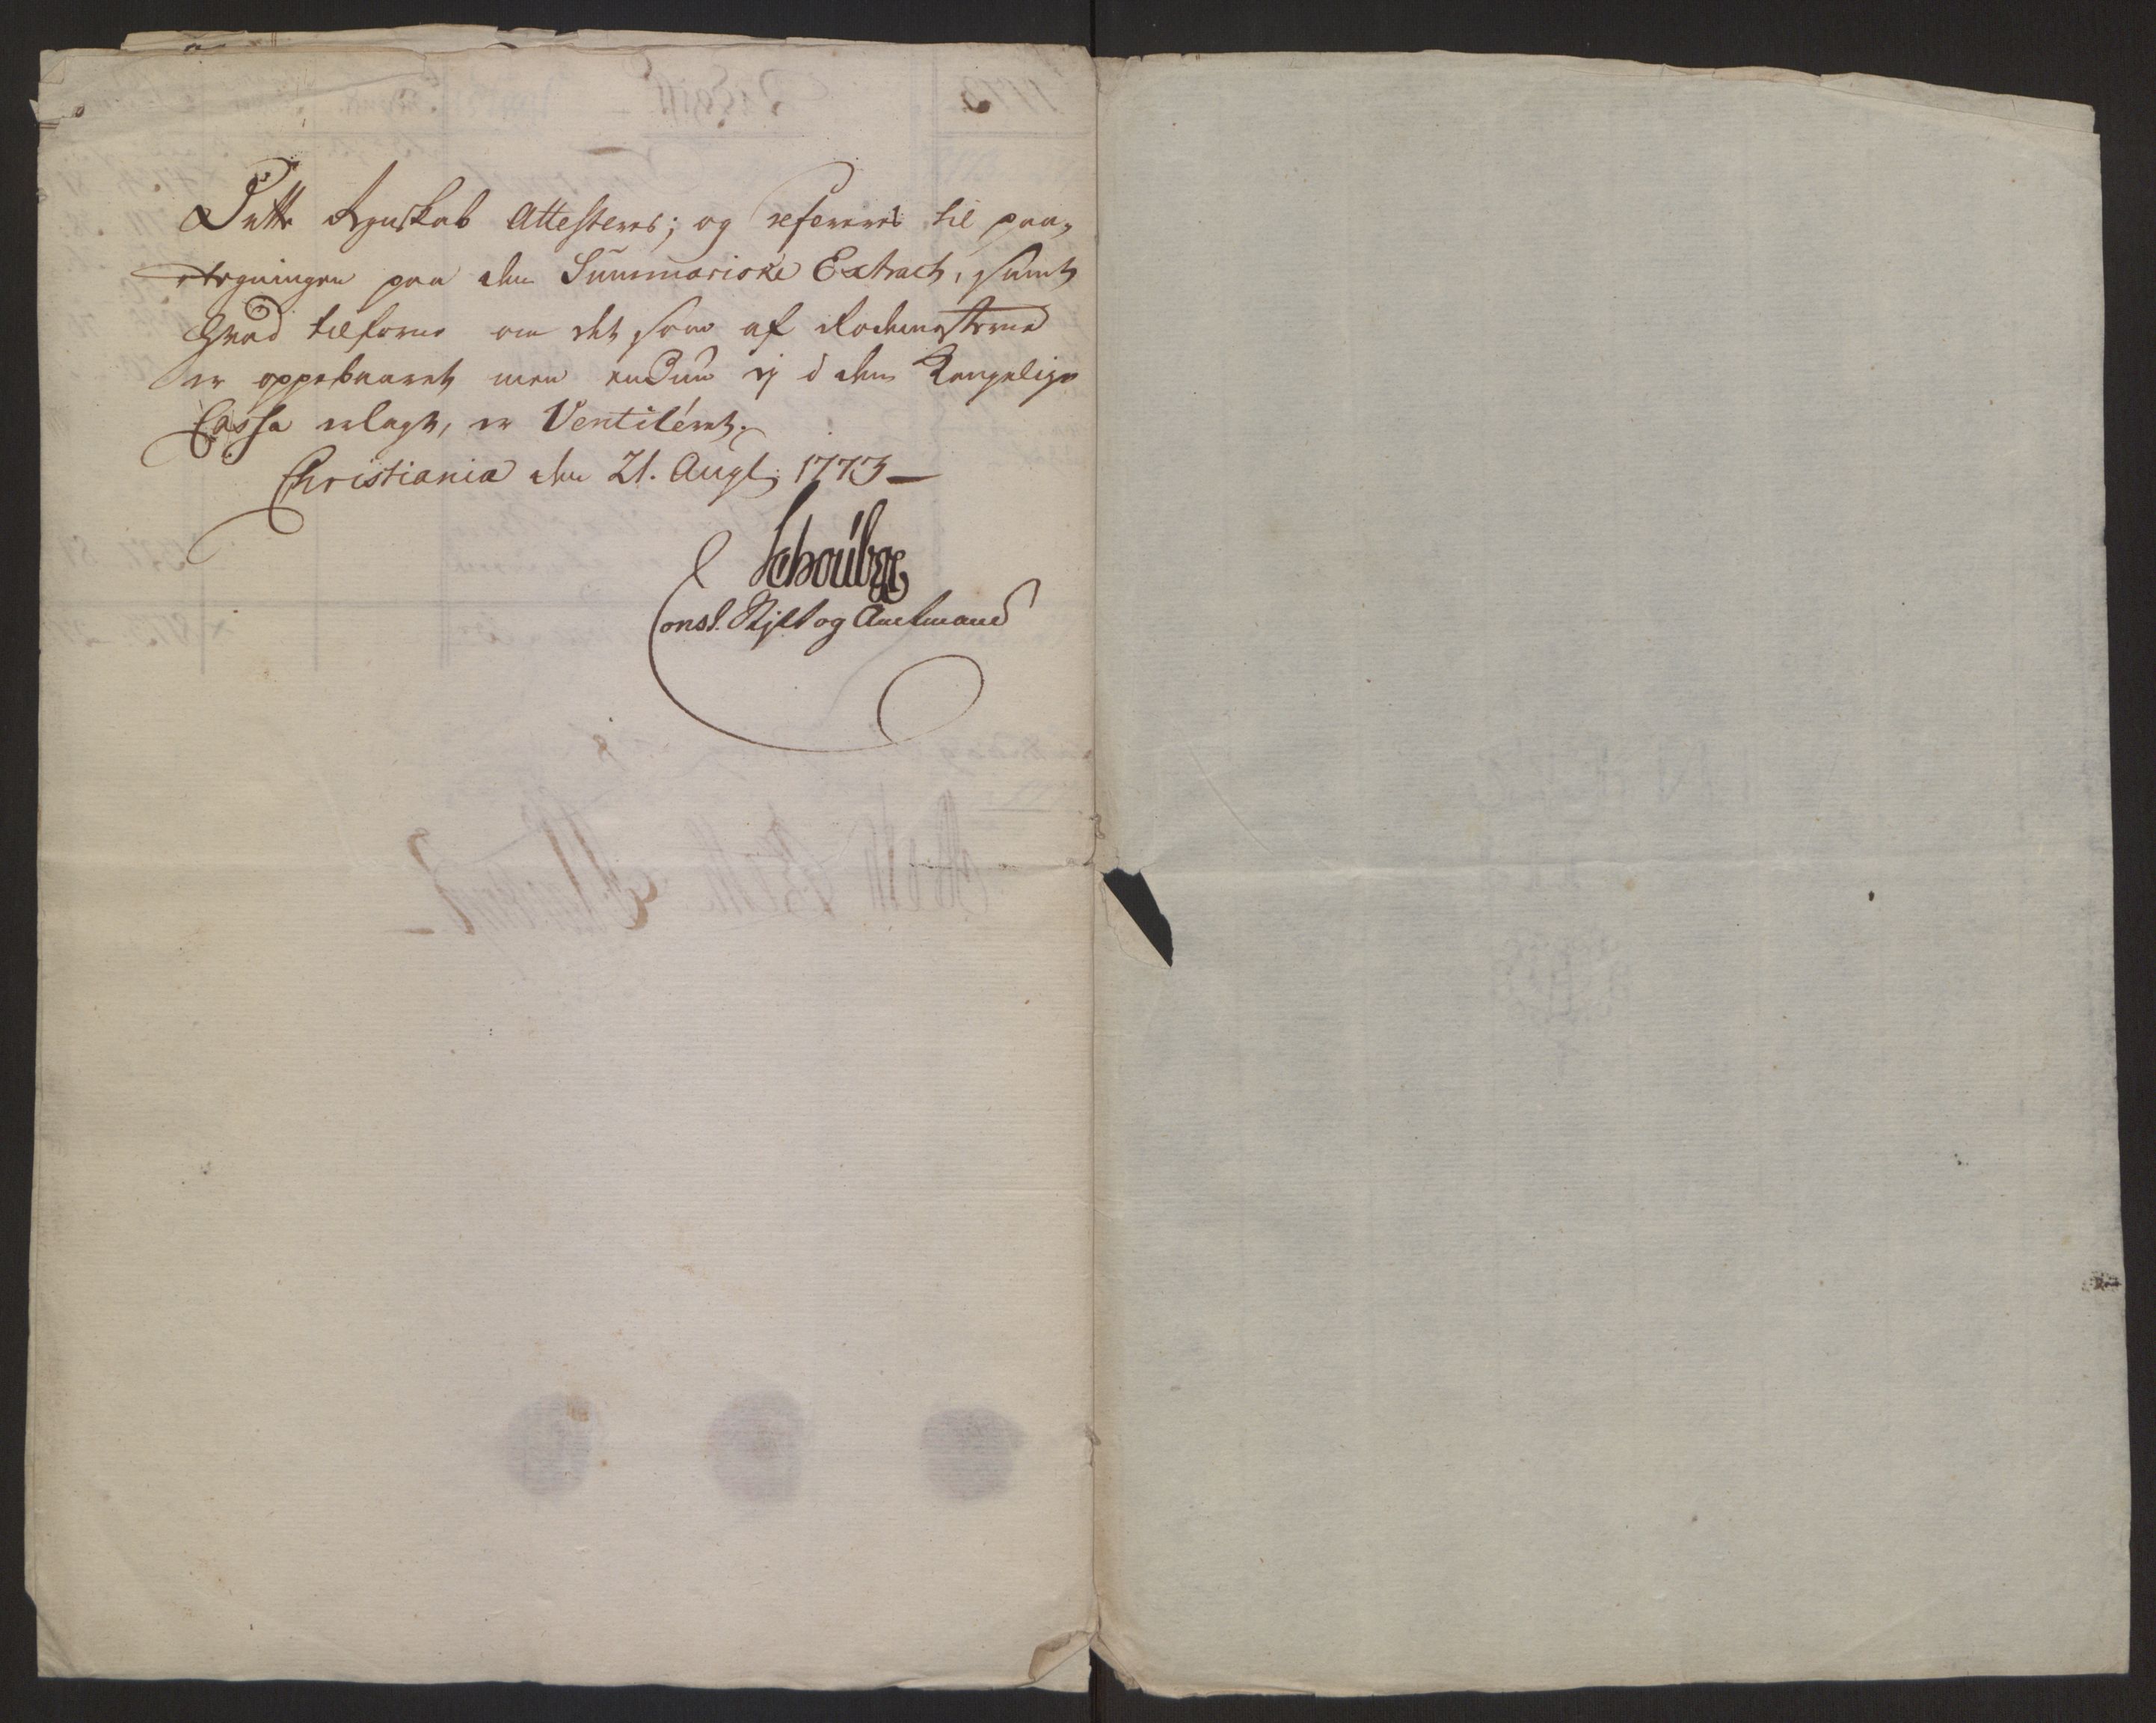 Dette Regnskab Attesteres; og refereres til paa-
tegningen paa den Summariske Extract, samt
hvad tilforne om det som af Rodemesterne
er oppebaaret men endnu ej i den Kongelige
Cassa erlagt, er Ventileret.
Christiania den 21. Augt: 1773 –
Schoubye
Const. Stift og Amtmand